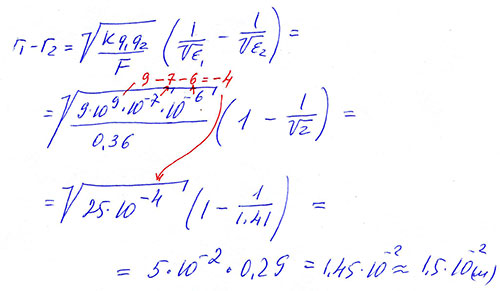 r₁-r₂ = √(kq₁q₂/F) (1/√ε₁ - 1/√ε₂) =
9-7-6=-4
= √(9·10⁹·10⁻⁷·10⁻⁶/0,36) (1 - 1/√2) =
= √(25·10⁻⁴) (1 - 1/1,41) =
= 5·10⁻²·0,29 = 1,45·10⁻² ≈ 1,5·10⁻² (м)